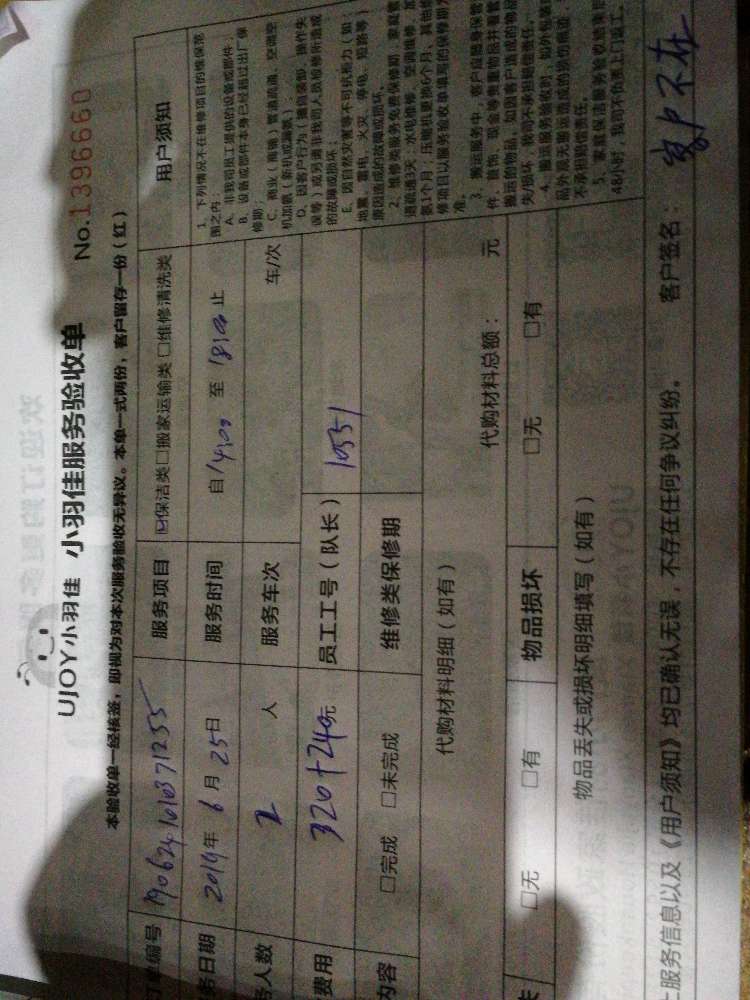 UJOY小羽佳 小羽佳服务验收单 No.1396660
本验收单一经核签，即视为对本次服务验收无异议。本单一式两份，客户留存一份（红）
单编号 1906241010371255 服务项目 ☑保洁类□搬家运输类□维修清洗类 用户须知
务日期 2019年6月25日 服务时间 自14:00 至 18:00止
务人数 2 人 服务车次 车/次
费用 320+240元 员工工号（队长） 10551
内容 □完成 □未完成 维修类保修期
代购材料明细（如有） 代购材料总额： 元
□无 □有 物品损坏 □无 □有
物品丢失或损坏明细填写（如有）
服务信息以及《用户须知》均已确认无误，不存在任何争议纠纷。 客户签名： 客户不在
1、下列情况不在维修项目的维保范
围之内：
A、非我司员工提供的设备或部件；
B、设备或部件本身已经超过出厂保
修期；
C、商业（商铺）管道疏通、空调空
机加氨（新机或漏氨）；
D、因客户行为（擅自装卸、操作失
误等）或另请非我司人员检修所造成
的故障或损坏；
E、因自然灾害等不可抗力（如：
地震、雷电、火灾、停电、短路等）
原因造成的故障或损坏。
2、维修类服务免费保修期：家庭管
道疏通3天，水电维修、空调维修、加
氨1个月；压缩机更换6个月、其他维
修项目以服务验收单填写的保修期为
准。
3、搬运服务中，客户应随身保管
件、首饰、现金等贵重物品并看管
搬运的物品，如因客户造成的物品
失/损坏，我司不承担赔偿责任。
4、搬运服务验收时，如外包装
品外观无搬运造成的损伤痕迹，
不承担赔偿责任。
5、家庭保洁服务验收结束
48小时，我司不负责上门返工。